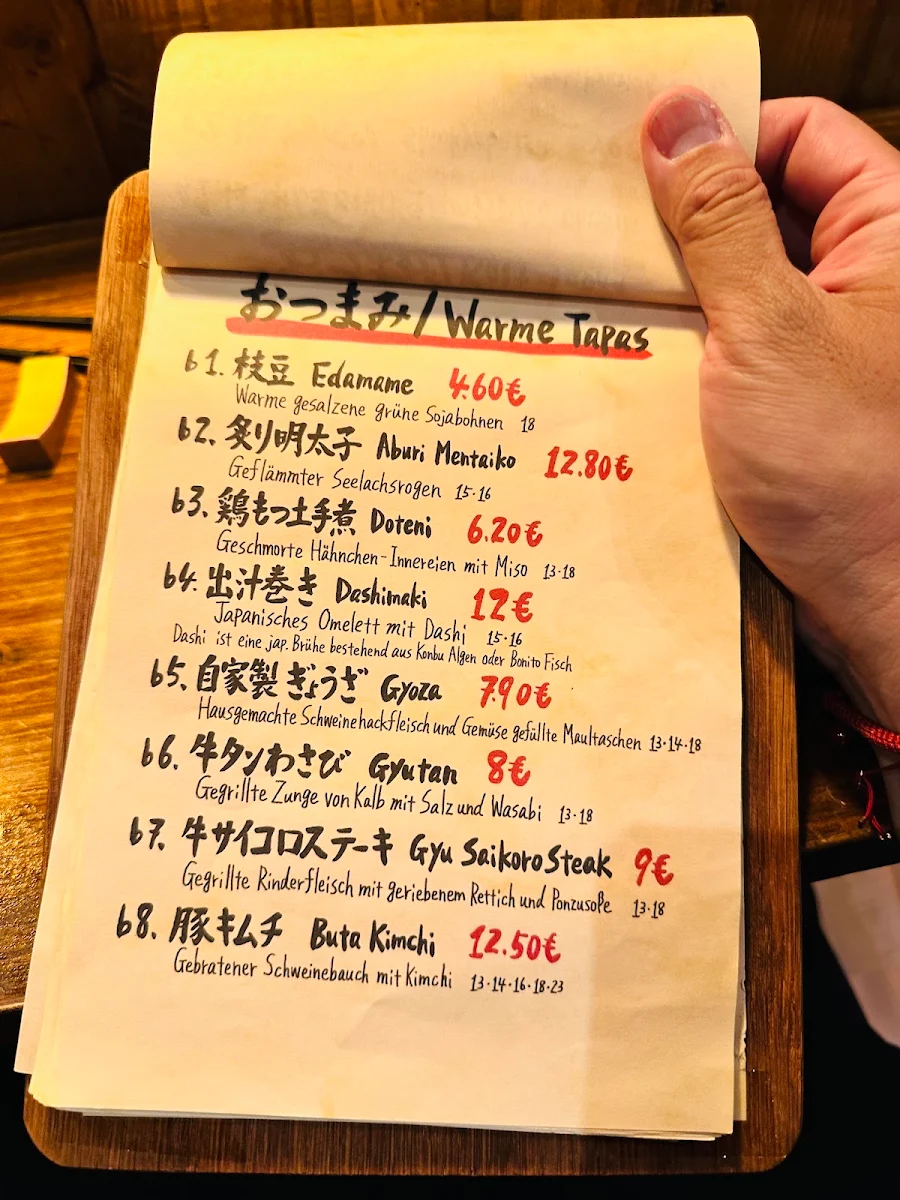 おつまみ/Warme Tapas
61. 枝豆 Edamame 4.60€
Warme gesalzene grüne Sojabohnen 18
62. 炙り明太子 Aburi Mentaiko 12.80€
Geflämmter Seelachsrogen 15·16
63. 鶏もつ土手煮 Doteni 6.20€
Geschmorte Hähnchen-Innereien mit Miso 13·18
64. 出汁巻き Dashimaki 12€
Japanisches Omelett mit Dashi 15·16
Dashi ist eine jap. Brühe bestehend aus Konbu Algen oder Bonito Fisch
65. 自家製ぎょうざ Gyoza 7.90€
Hausgemachte Schweinehackfleisch und Gemüse gefüllte Maultaschen 13·14·18
66. 牛タンわさび Gyutan 8€
Gegrillte Zunge von Kalb mit Salz und Wasabi 13·18
67. 牛サイコロステーキ Gyu Saikoro Steak 9€
Gegrillte Rinderfleisch mit geriebenem Rettich und Ponzusoße 13·18
68. 豚キムチ Buta Kimchi 12.50€
Gebratener Schweinebauch mit Kimchi 13·14·16·18·23